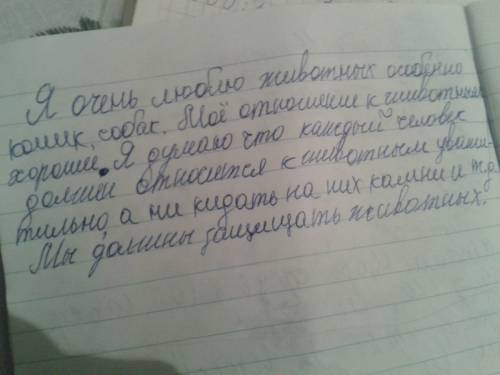 Я очень люблю животных особенно
кошик, собак. Моё отношение к животным
хорошие. Я думаю что каждый человек
должен относится к животным уважи-
тильно, а ни кидать на них камни и т.д.
Мы должны защищать животных.